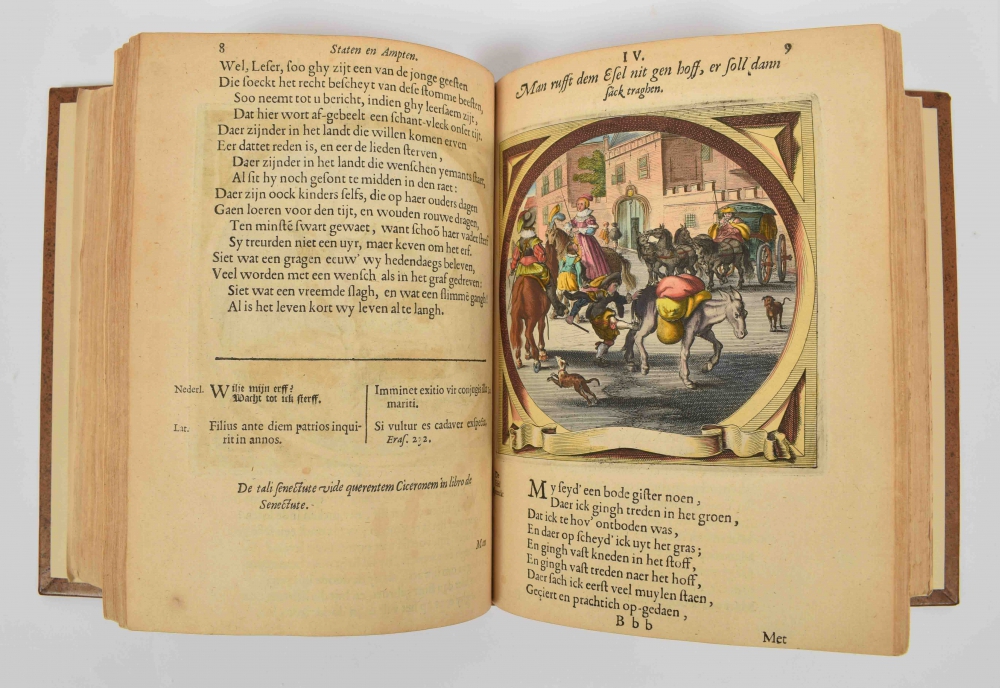 8
Staten en Ampten.
Wel, Leſer, ſoo ghy zijt een van de jonge geeſten
Die ſoeckt het recht beſcheyt van deſe ſtomme beeſten,
Soo neemt tot u bericht, indien ghy leerſaem zijt,
Dat hier wort af-gebeelt een ſchant-vleck onſer tijt.
Daer zijnder in het landt die willen komen erven
Eer dattet reden is, en eer de lieden ſterven,
Daer zijnder in het landt die wenſchen yemants ſtaet,
Al ſit hy noch geſont te midden in den raet:
Daer zijn oock kinders ſelfs, die op haer ouders dagen
Gaen loeren voor den tijt, en wouden rouwe dragen,
Ten minſtē ſwart gewaet, want ſchoō haer vader ſterf
Sy treurden niet een uyr, maer keven om het erf.
Siet wat een gragen eeuw' wy hedendaegs beleven,
Veel worden met een wenſch als in het graf gedreven:
Siet wat een vreemde ſlagh, en wat een ſlimmē gangh!
Al is het leven kort wy leven al te langh.
Nederl.
Wilje mijn erff?
Wacht tot ick ſterff.
Lat.
Filius ante diem patrios inqui-
rit in annos.
Imminet exitio vir conjugis illa
mariti.
Si vultur es cadaver exſpecta,
Eraſ. 232.
De tali ſenectute vide querentem Ciceronem in libro de
Senectute.
IV.
9
Man rufft dem Eſel nit gen hoff, er ſoll dann
ſäck traghen.
My ſeyd' een bode giſter noen,
Daer ick gingh treden in het groen,
Dat ick te hov' ontboden was,
En daer op ſcheyd' ick uyt het gras;
En gingh vaſt kneden in het ſtoff,
En gingh vaſt treden naer het hoff,
Daer ſach ick eerſt veel muylen ſtaen,
Geçiert en prachtich op-gedaen,
Bbb
Met